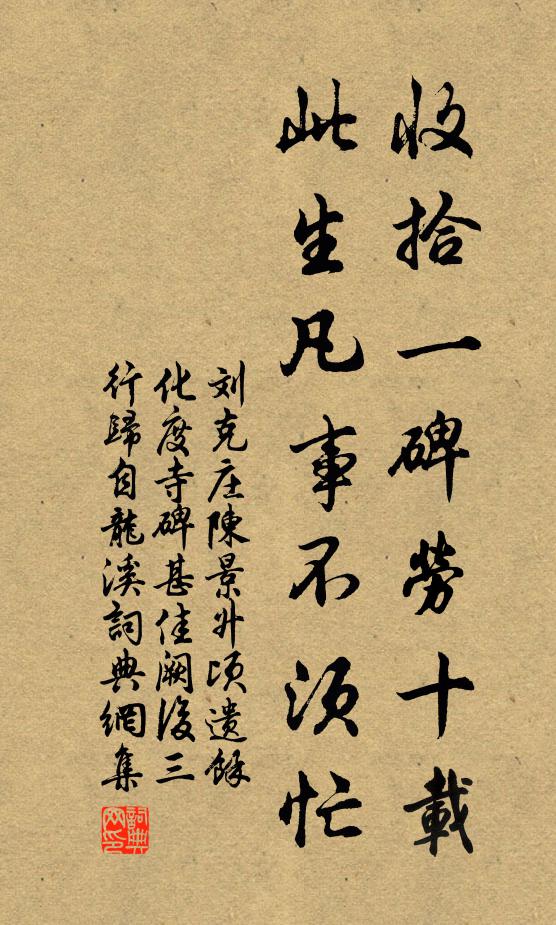 收拾一碑勞十載
此生凡事不須忙
刘克庄陳景升頃遺餘
化度寺碑甚佳闕後三
行歸自龍溪詞典網集
詞典网印